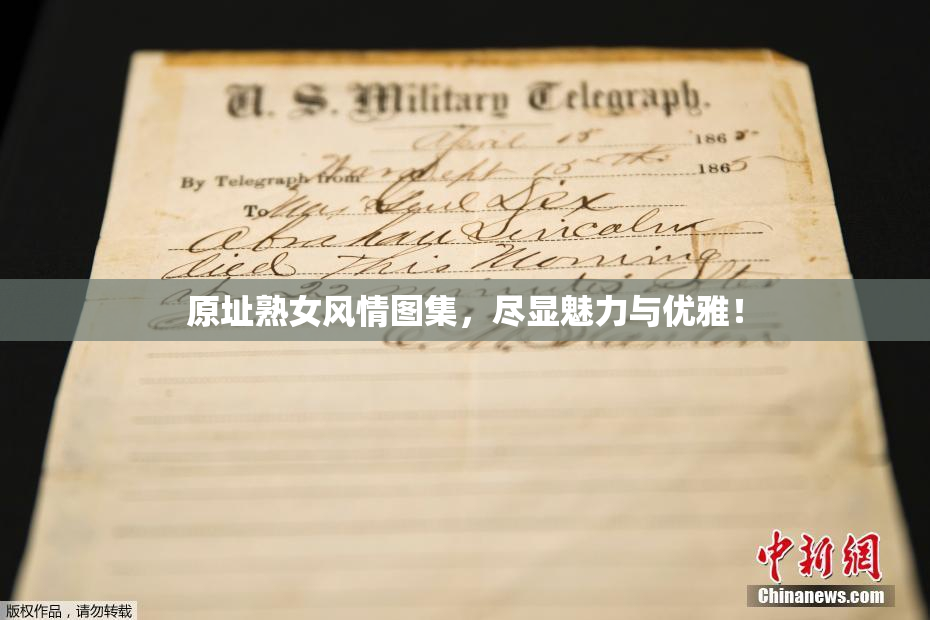 U. S. Military Telegraph.
April 15 1865
By Telegraph from War Dept 15th 1865
To Maj Genl Dix
Abraham Lincoln
died This Morning
at 22 minutes after
原址熟女风情图集，尽显魅力与优雅！
E. M. Stanton
中新网
Chinanews.com
版权作品，请勿转载